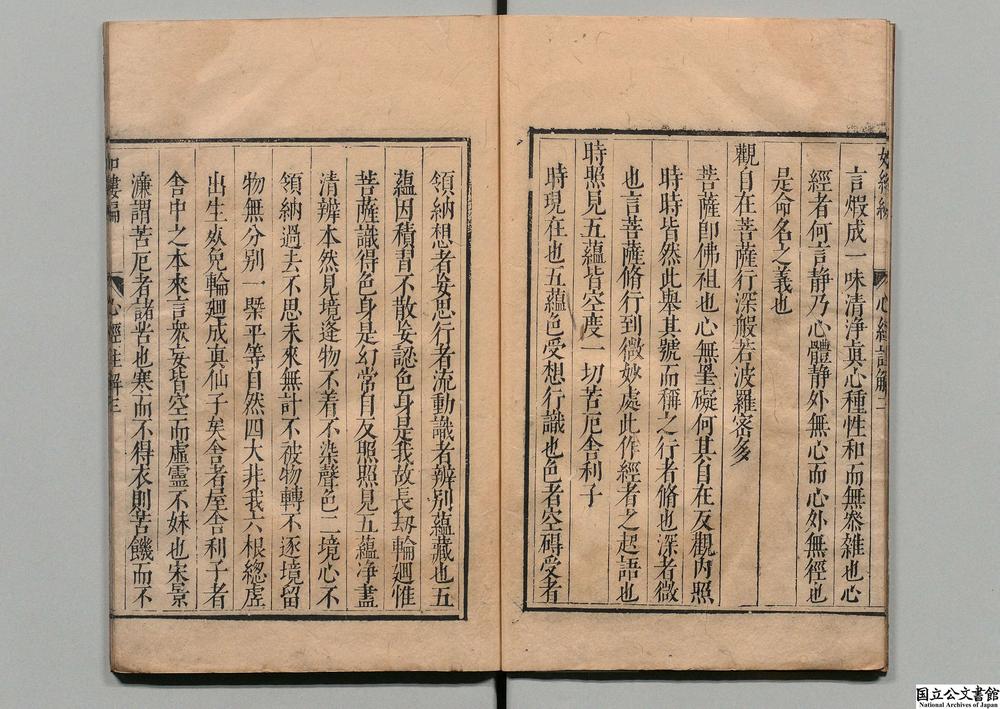 言煅成一味清淨真心種性和而無叅雑也心
經者何言靜乃心體靜外無心而心外無徑也
是命名之義也
觀自在菩薩行深般若波羅密多
菩薩卽佛祖也心無罣礙何其自在反觀內照
時時皆然此舉其號而稱之行者脩也深者微
也言菩薩脩行到微妙處此作經者之起語也
時照見五蘊皆空度一切苦厄舎利子
時現在也五蘊色受想行識也色者空碍受者
領納想者妄思行者流動識者辨別蘊藏也五
蘊因積習不散妄認色身是我故長刼輪廻惟
菩薩識得色身是幻常自反照照見五蘊淨盡
清辨本然見境逢物不着不染聲色二境心不
領納過去不思未來無計不被物轉不逐境留
物無分別一槩平等自然四大非我六根總虛
出生死免輪廻成真仙子矣舎者屋舎利子者
舎中之本來言衆妄皆空而虛靈不妹也宋景
濂謂苦厄者諸苦也寒而不得衣則苦饑而不
心經註解三
国立公文書館
National Archives of Japan